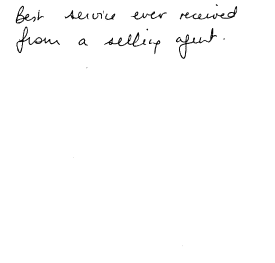 Best service ever received
from a selling agent.